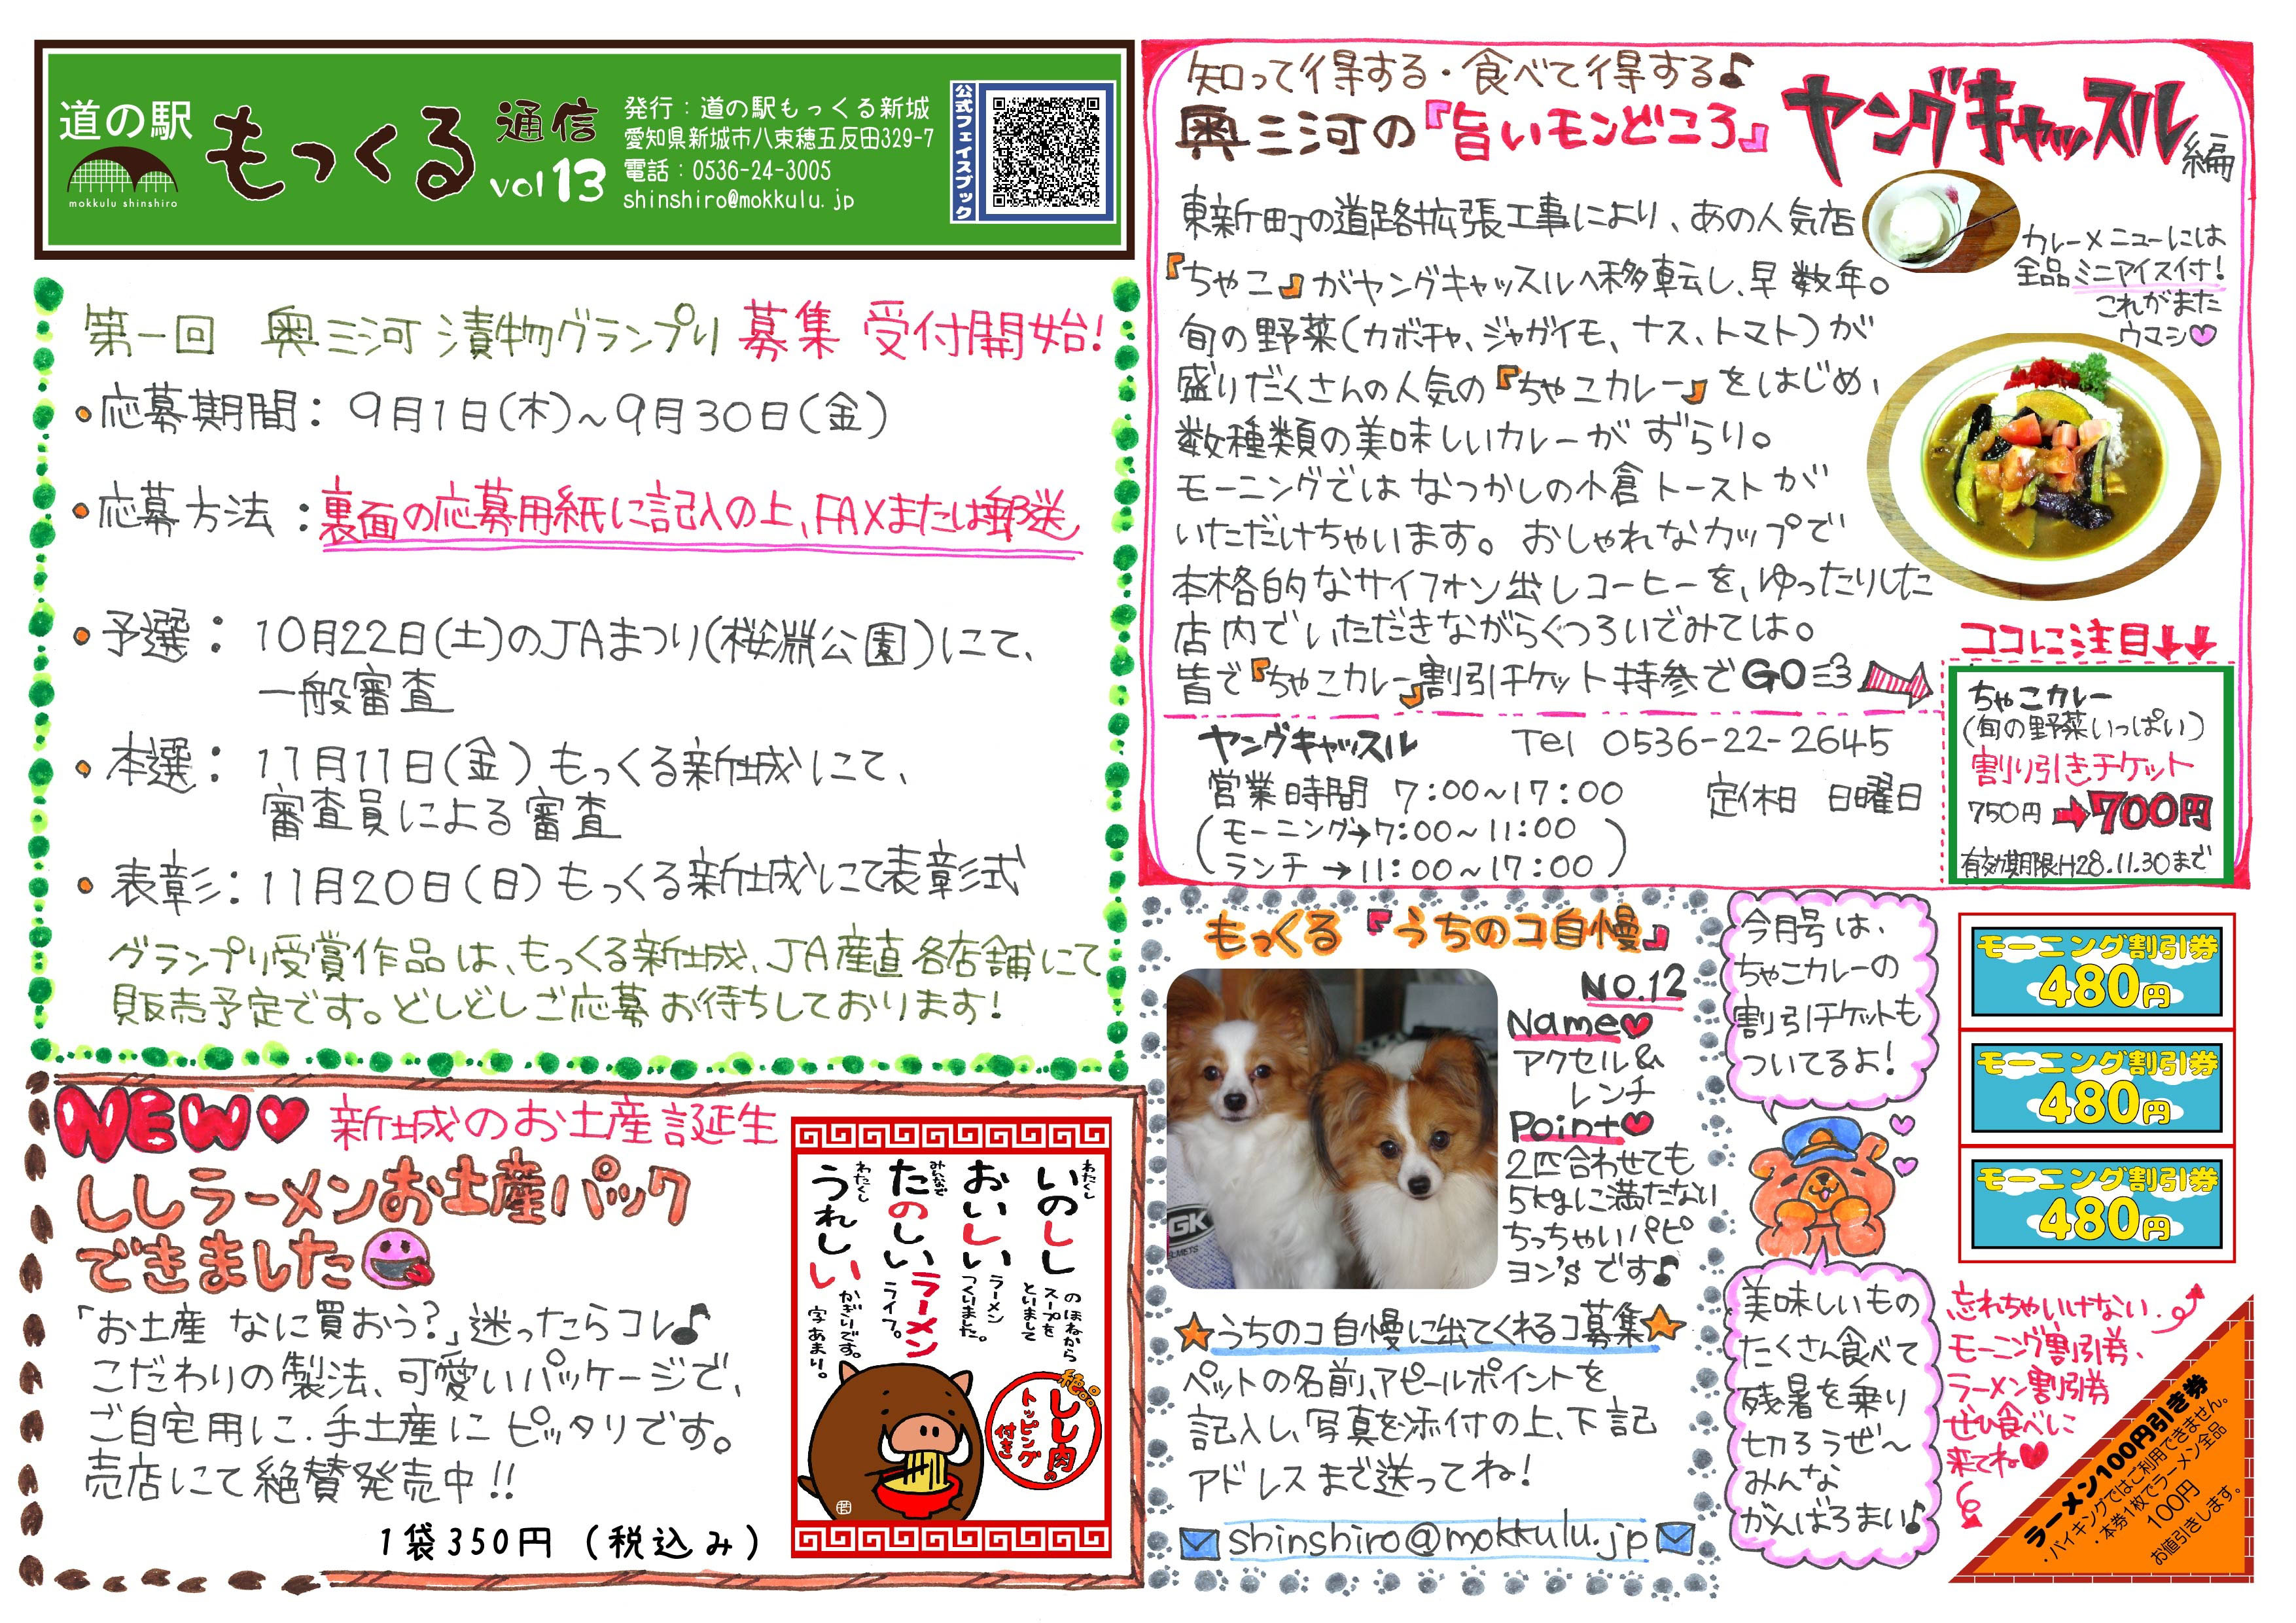 道の駅
mokkulu shinshiro
もっくる 通信
vol 13
発行：道の駅もっくる新城
愛知県新城市八束穂五反田329-7
電話：0536-24-3005
shinshiro@mokkulu.jp
公式フェイスブック
第一回 奥三河 漬物グランプリ 募集 受付開始！
・応募期間：9月1日（木）～9月30日（金）
・応募方法：裏面の応募用紙に記入の上、FAXまたは郵送
・予選：10月22日（土）のJAまつり（桜淵公園）にて、
一般審査
・本選：11月11日（金）もっくる新城にて、
審査員による審査
・表彰：11月20日（日）もっくる新城にて表彰式
グランプリ受賞作品は、もっくる新城、JA産直各店舗にて
販売予定です。どしどしご応募お待ちしております！
NEW♥ 新城のお土産誕生
ししラーメンお土産パック
できました
「お土産 なに買おう？」迷ったらコレ♪
こだわりの製法、可愛いパッケージで、
ご自宅用に、手土産に ピッタリです。
売店にて絶賛発売中！！
1袋350円（税込み）
わたくし
いのしし
のほねから
スープを
といまして
おいしい
ラーメン
つくりました。
みんなで
たのしい
ラーメン
ライフ。
わたくし
うれしい
かぎりです。
字あまり。
絶品
しし肉の
トッピング
付き
知って得する・食べて得する♪
奥三河の『旨いモンどころ』
ヤングキャッスル編
東新町の道路拡張工事により、あの人気店
『ちゃこ』がヤングキャッスルへ移転し、早 数年。
旬の野菜（カボチャ、ジャガイモ、ナス、トマト）が
盛りだくさんの人気の『ちゃこカレー』をはじめ、
数種類の美味しいカレーが ずらり。
モーニングでは なつかしの小倉トーストが
いただけちゃいます。おしゃれなカップで
本格的なサイフォン出しコーヒーを、ゆったりした
店内でいただきながらくつろいでみては。
皆で『ちゃこカレー』割引チケット持参でGO=3
カレーメニューには
全品ミニアイス付！
これがまた
ウマシ♡
ヤングキャッスル Tel 0536-22-2645
営業時間 7:00～17:00 定休日 日曜日
（モーニング→7:00～11:00
ランチ→11:00～17:00）
ココに注目↓↓
ちゃこカレー
（旬の野菜いっぱい）
割り引きチケット
750円➡700円
有効期限H28.11.30まで
もっくる『うちのコ自慢』
NO.12
Name♥
アクセル&
レンチ
Point♥
2匹合わせても
5kgに満たない
ちっちゃいパピ
ヨン'sです♪
GK
HELMETS
☆うちのコ自慢に出てくれるコ募集☆
ペットの名前、アピールポイントを
記入し、写真を添付の上、下記
アドレスまで送ってね！
shinshiro@mokkulu.jp
今月号は、
ちゃこカレーの
割引チケットも
ついてるよ！
美味しいもの
たくさん食べて
残暑を乗り
切ろうぜ～
みんな
がんばろまい♪
モーニング割引券
480円
モーニング割引券
480円
モーニング割引券
480円
忘れちゃいけない．
モーニング割引券、
ラーメン割引券
ぜひ食べに
来てね♥
ラーメン100円引き券
・バイキングではご利用できません。
・本券1枚でラーメン全品
100円
お値引きします。